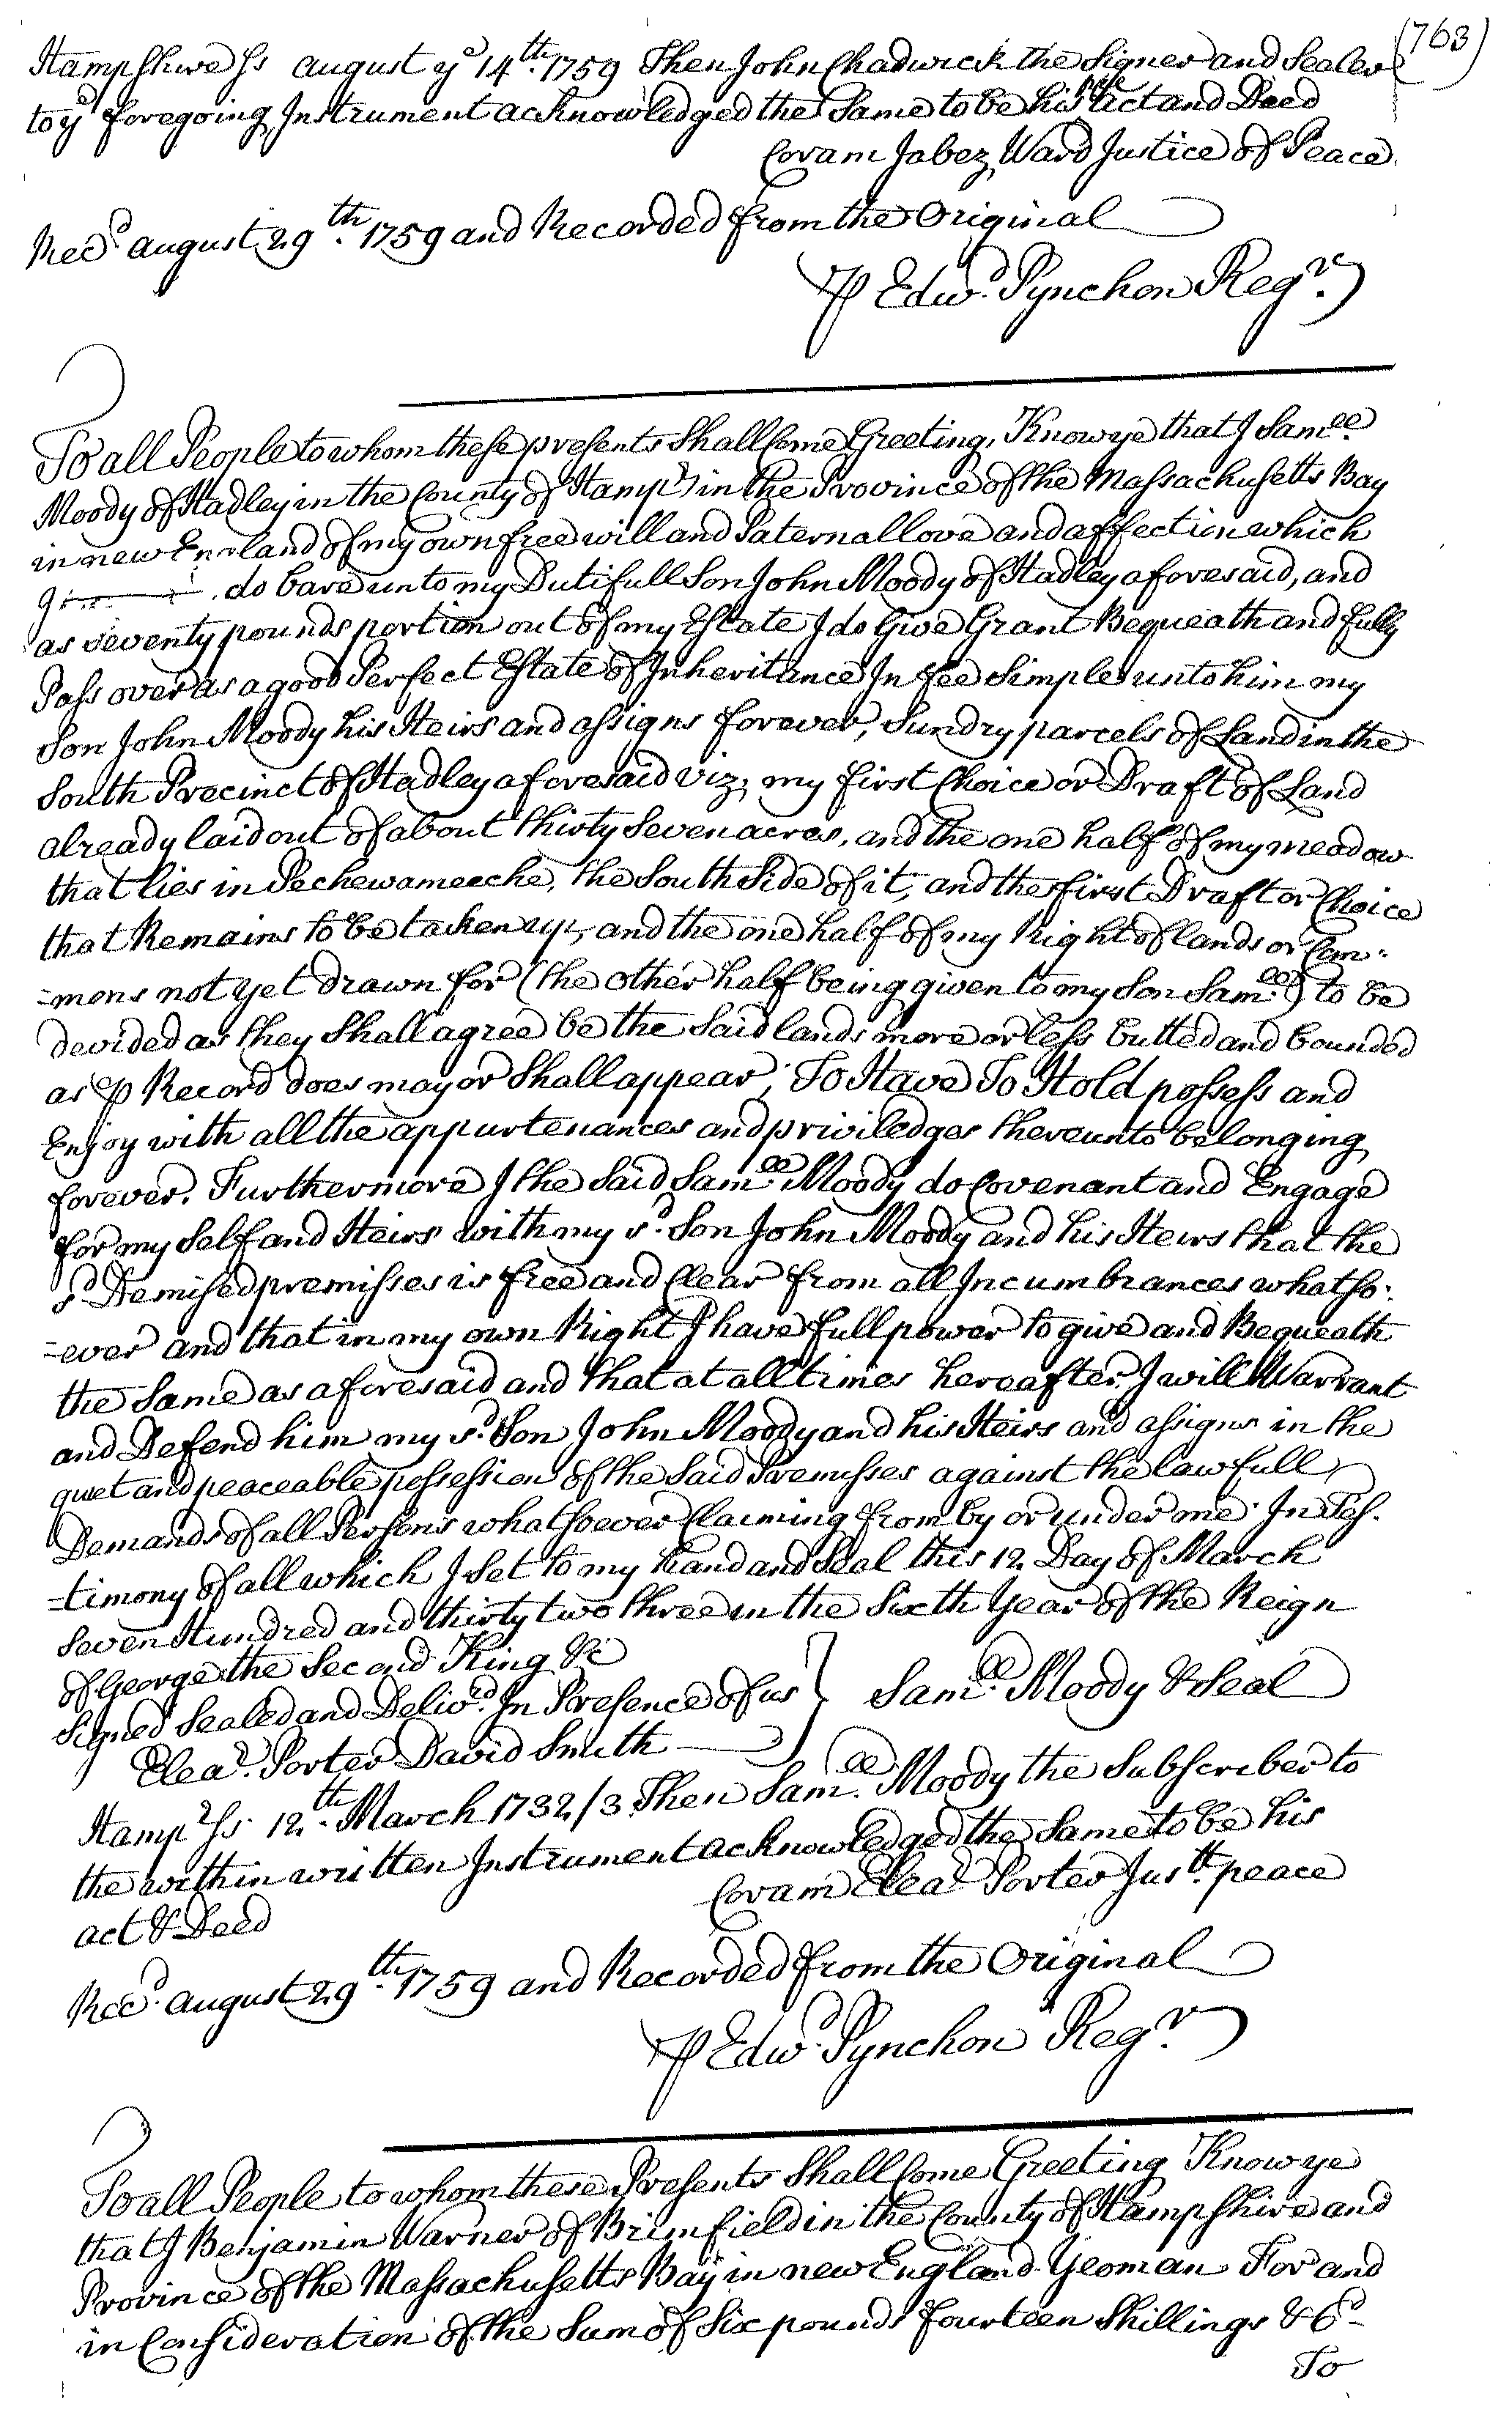 (763)
Hampshire ss august ye 14th. 1759 Then John Chadwick the Signer and Sealer
to ye foregoing Instrument acknowledged the Same to be his free act and Deed
Coram Jabez Ward Justice of Peace.
Recd. august 29th. 1759 and Recorded from the Original
⅌ Edwd. Pynchon Regr.
To all People to whom these presents Shall Come Greeting, Know ye that I Samll.
Moody of Hadley in the County of Hampr. in the Province of the Massachusetts Bay
in new England of my own free will and Paternal love and affection which
I do bare unto my Dutifull Son John Moody of Hadley aforesaid, and
as seventy pounds portion out of my Estate I do Give Grant Bequeath and fully
Pass over as a good Perfect Estate of Inheritance In fee Simple unto him my
Son John Moody his Heirs and assigns forever, Sundry parcels of Land in the
South Precinct of Hadley aforesaid viz, my first Choice or Draft of Land
already laid out of about thirty Seven acres, and the one half of my meadow
that lies in Pechewameeche, the South Side of it, and the first Draft or Choice
that Remains to be tacken up, and the one half of my Right of lands or Com:
=mons not yet drawn for (the other half being given to my Son Samll.) to be
devided as they Shall agree be the Said lands more or less butted and bounded
as ⅌ Record does may or Shall appear; To Have To Hold possess and
Enjoy with all the appurtenances and priviledges thereunto belonging
forever. Furthermore I the Said Samll. Moody do Covenant and Engage
for my Self and Heirs with my sd. Son John Moody and his Heirs that the
sd Demised premisses is free and Clear from all Incumbrances whatso:
=ever and that in my own Right I have full power to give and Bequeath
the Same as aforesaid and that at all times hereafter I will Warrant
and Defend him my sd. Son John Moody and his Heirs and assigns in the
quiet and peaceable possession of the Said Premisses against the lawfull
Demands of all Persons whatsoever Claiming from by or under me In Tes.
=timony of all which I Set to my hand and Seal this 12 Day of March
Seven Hundred and thirty two three in the Sixth Year of the Reign
of George the Second King &c
Signed Sealed and Delivd. In Presence of us } Samll. Moody & Seal
Elear. Porter David Smith
Hampr ss. 12th. March 1732/3 Then Samll. Moody the Subscriber to
the within written Instrument acknowledged the Same to be his
act & Deed
Coram Elear Porter Justt. peace
Recd. august 29th. 1759 and Recorded from the Original
⅌ Edwd. Pynchon Regr.
To all People to whom these Presents Shall Come Greeting Know ye
that I Benjamin Warner of Brimfield in the County of Hampshire and
Province of the Massachusetts Bay in new England Yeoman For and
in Consideration of the Sum of Six pounds fourteen Shillings & 6d
To